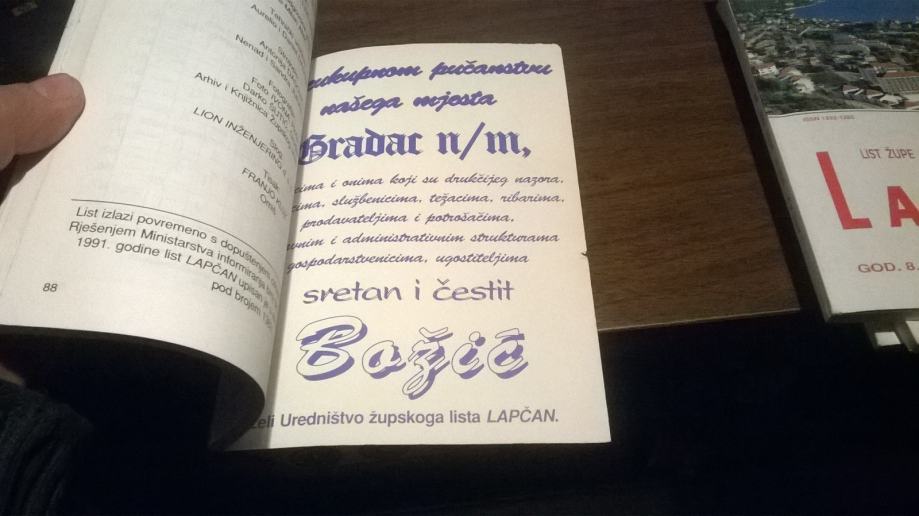 Tehnič
Aurelio i D
Nenad i San
Fotogra
Foto IVONA
Darko ŠUTIĆ
Arhiv i Knjižnica Župsko
Slog
LION INŽENJERING d
Tisak
FRANJO K
Omiš
List izlazi povremeno s dopuštenjem
Rješenjem Ministarstva informiranja
1991. godine list LAPČAN upisan je
pod brojem
88
ukupnom pučanstvu
našega mjesta
Gradac n/m,
cima i onima koji su drukčijeg nazora,
cima, službenicima, težacima, ribarima,
prodavateljima i potrošačima,
vnim i administrativnim strukturama
gospodarstvenicima, ugostiteljima
sretan i čestit
Božić
želi Uredništvo župskoga lista LAPČAN.
LIST ŽUPE
LA
GOD. 8.